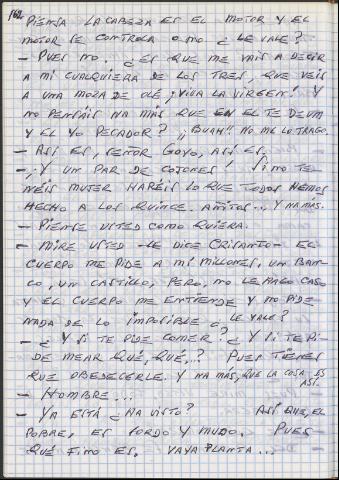 162
PIENSA LA CABEZA ES EL MOTOR Y EL
MOTOR SE CONTROLA O NO ¿LE VALE?
- PUES NO. ¿ES QUE ME VAIS A DECIR
A MÍ CUALQUIERA DE LOS TRES, QUE VEIS
A UNA MOZA DE OLÉ, ¡VIVA LA VIRGEN! Y
NO PENSÁIS NA MÁS QUE EN EL TE DEUM
Y EL YO PECADOR? ¡¡BUAH!! NO ME LO TRAGO.
- ASÍ ES, SEÑOR GOYO, ASÍ ES.
- ¡Y UN PAR DE COJONES! SI NO TE
NÉIS MUJER HARÉIS LO QUE TODOS HEMOS
HECHO A LOS QUINCE. AÑITOS... Y NA MAS.
- PIENSE USTED COMO QUIERA.
- MIRE USTED - LE DICE CRISANTO - EL
CUERPO ME PIDE A MÍ MILLONES, UN BAN-
CO, UN CASTILLO, PERO, NO LE HAGO CASO
Y EL CUERPO ME ENTIENDE Y NO PIDE
NADA DE LO IMPOSIBLE ¿LE VALE?
- ¿Y SI TE PIDE COMER? ¿Y SI TE PI-
DE MEAR QUÉ, QUÉ..? PUES TIENES
QUE OBEDECERLE. Y NA MÁS, QUE LA COSA ES
ASÍ.
- HOMBRE...
- YA ESTÁ ¿HA VISTO? ASÍ QUE, EL
POBRE, ES SORDO Y MUDO. PUES
QUÉ FINO ES. VAYA PLANTA...